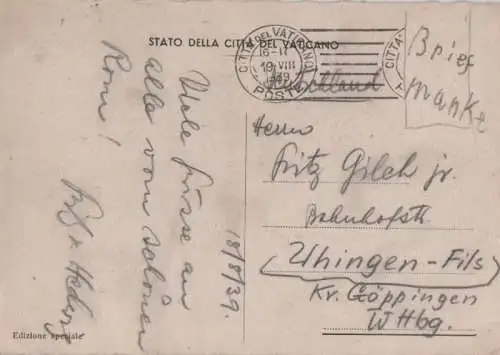 STATO DELLA CITTÀ DEL VATICANO
CITTÀ DEL VATICANO
16-17
19 VIII
1939
POSTE
CITTÀ
Brief
marke
Viele Grüsse an
alle vom schönen
Rom!
18/8/39.
Herrn
Fritz Gilch jr.
Bahnhofstr
Uhingen-Fils
Kr. Göppingen
Wttbg.
Edizione speciale